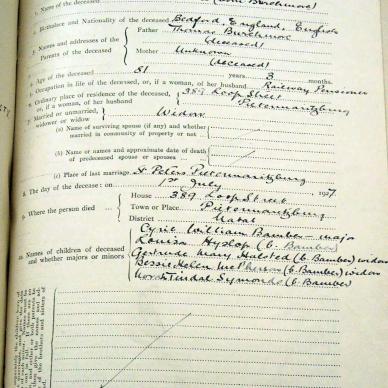 1. Name of the deceased
2. Birthplace and Nationality of the deceased Bedford, England, English
3. Names and addresses of the Parents of the deceased
Father Thomas Burchmore (deceased)
Mother Unknown (deceased)
4. Age of the deceased 81 years 3 months.
5. Occupation in life of the deceased, or, if a woman, of her husband Railway Pensioner
6. Ordinary place of residence of the deceased, or, if a woman, of her husband 389 Loop Street Pietermaritzburg
7. Married or unmarried, widower or widow Widow
(a) Name of surviving spouse (if any) and whether married in community of property or not
(b) Name or names and approximate date of death of predeceased spouse or spouses
(c) Place of last marriage St Peters Pietermaritzburg
8. The day of the decease: on 1st July 1927.
9. Where the person died
House 389 Loop Street
Town or Place Pietermaritzburg
District Natal
10. Names of children of deceased and whether majors or minors
Cyric William Bamber - major
Louisa Hyslop (b. Bamber)
Gertrude Mary Halsted (b. Bamber) widow
Bessie Helen (b. Bamber) widow
Tindal Symonds (b. Bamber)